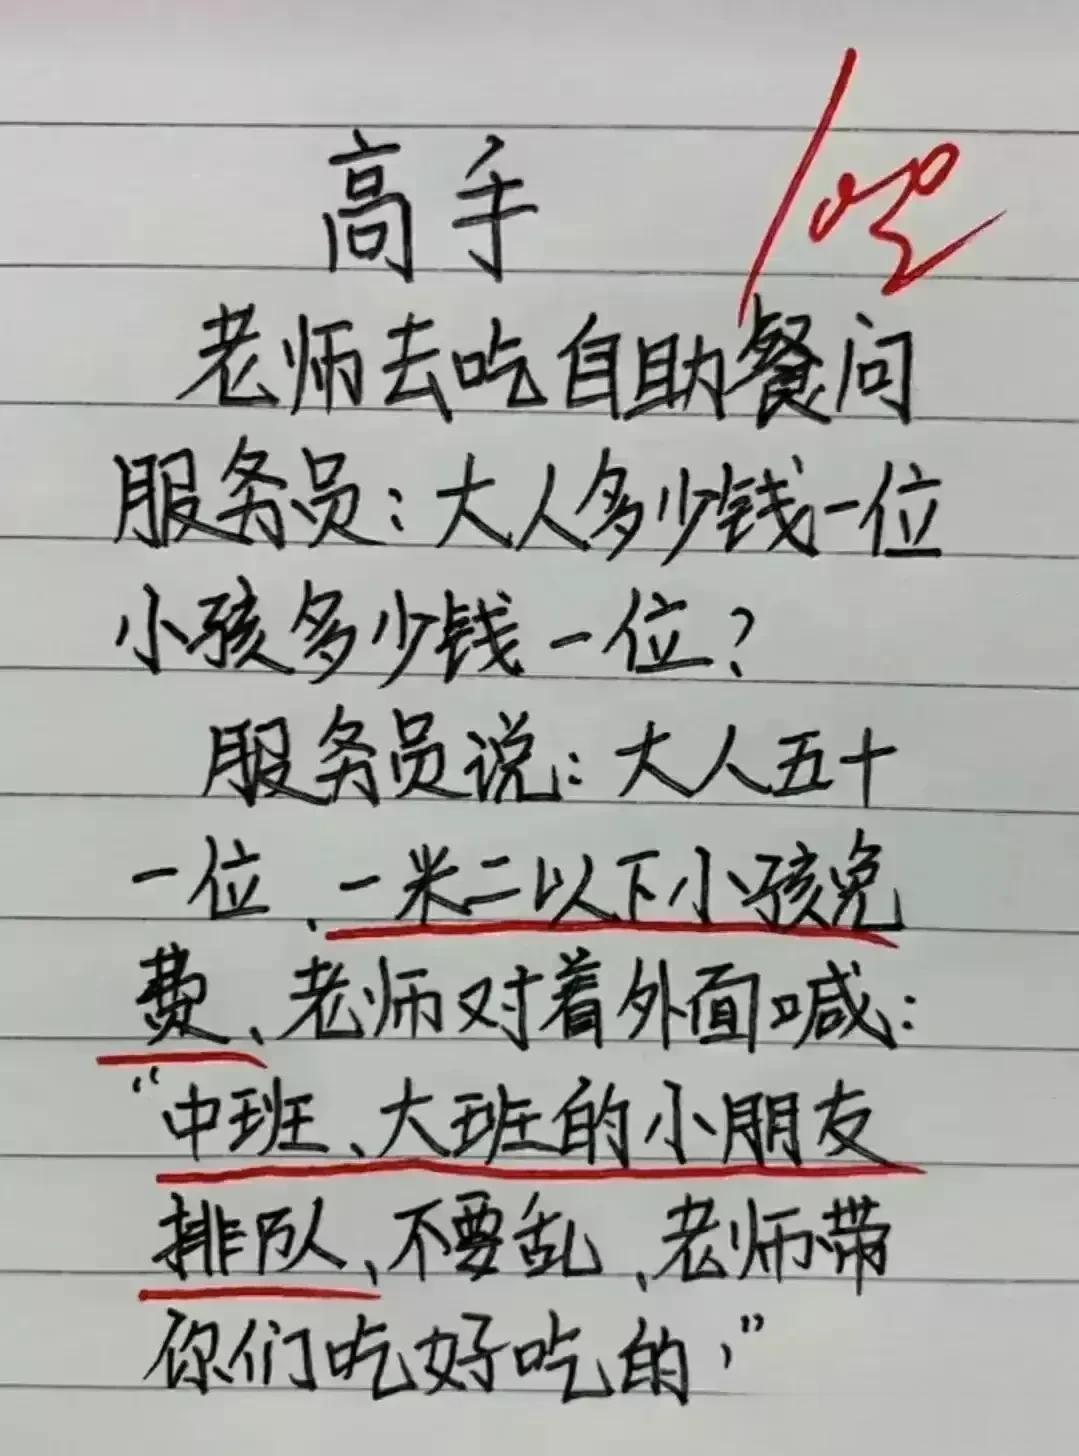 高手
老师去吃自助餐问
服务员：大人多少钱一位
小孩多少钱一位？
服务员说：大人五十
一位、一米二以下小孩免
费、老师对着外面喊：
“中班、大班的小朋友
排队、不要乱、老师带
你们吃好吃的，”